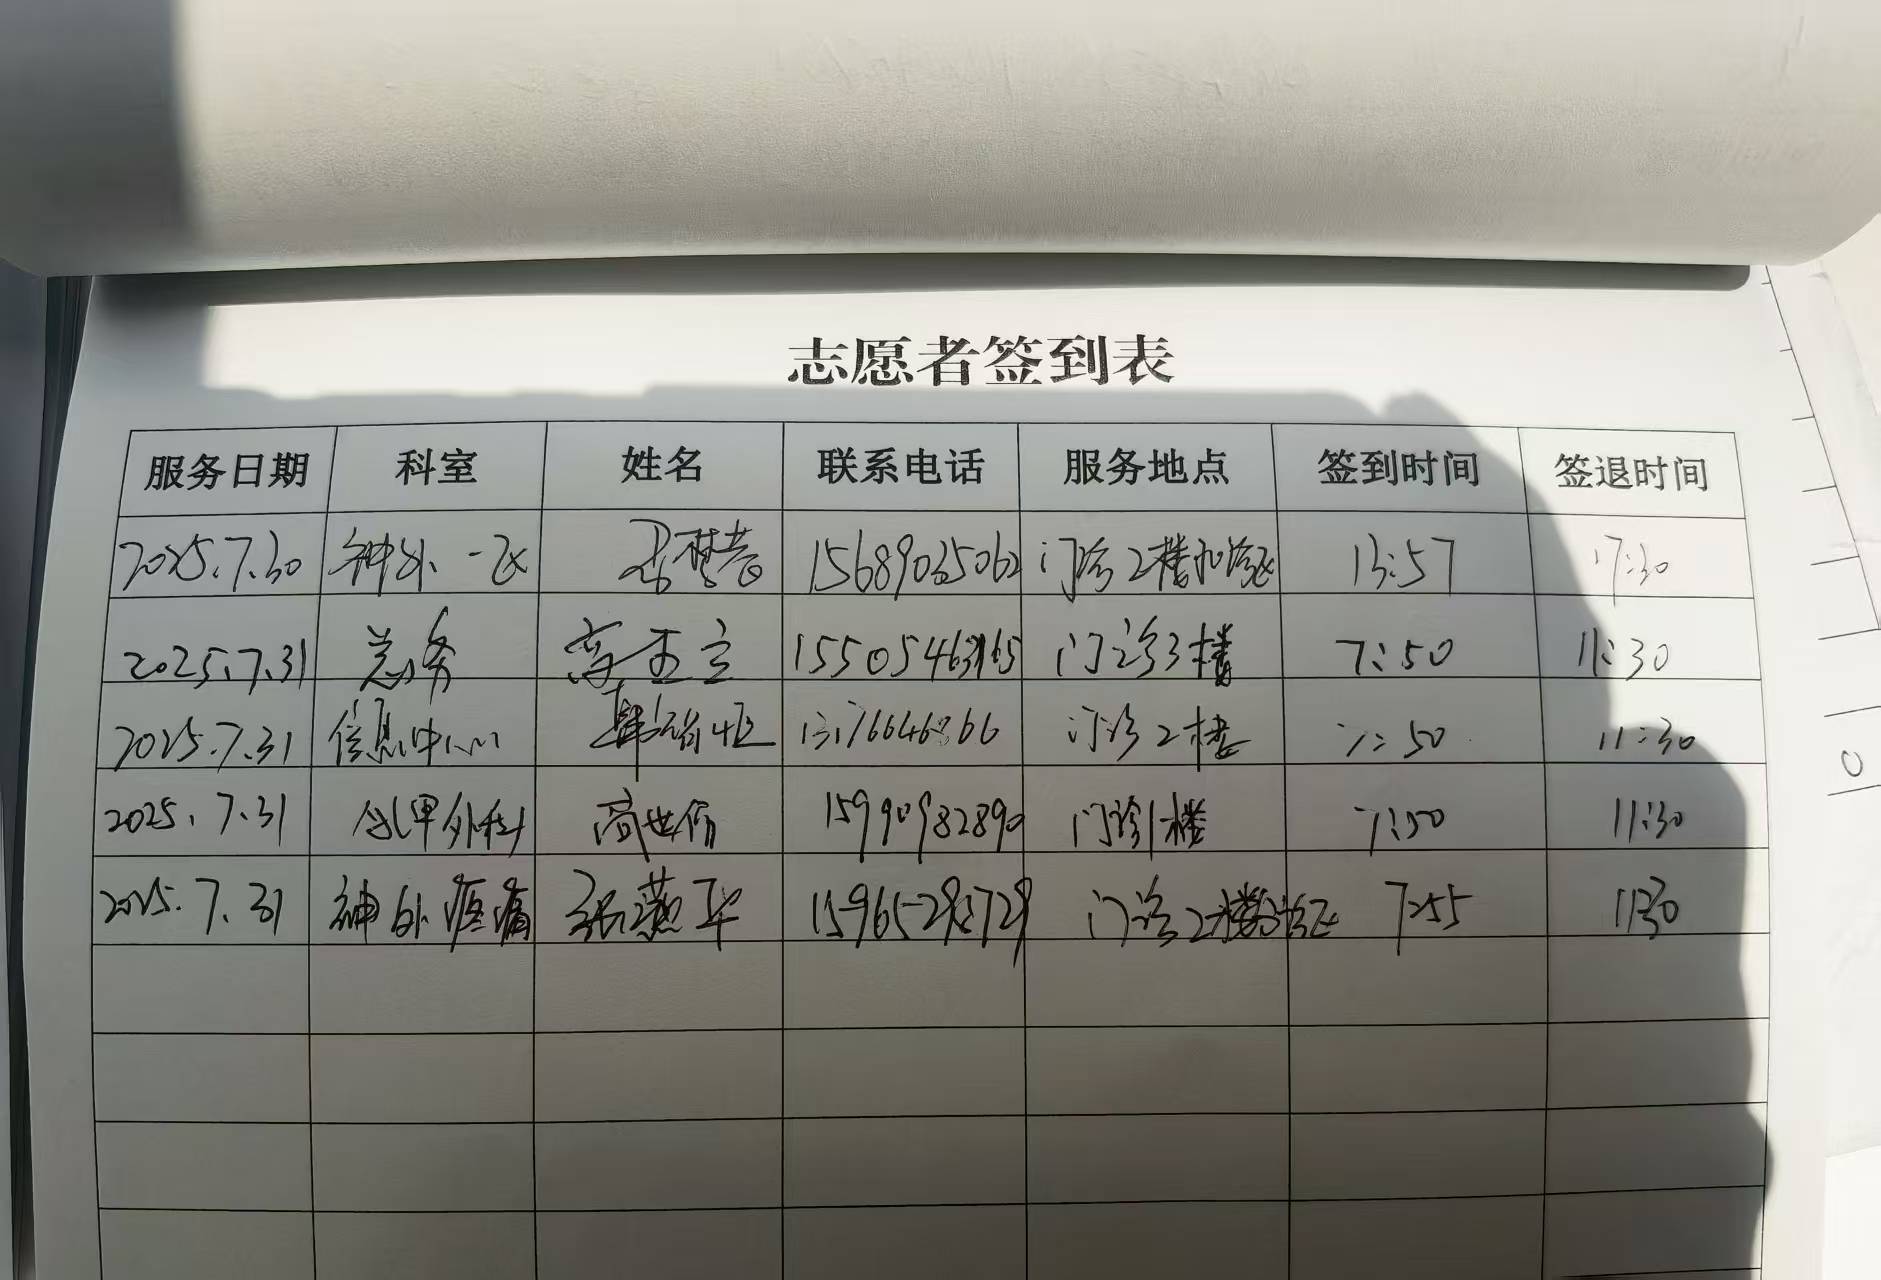 志愿者签到表
服务日期 科室 姓名 联系电话 服务地点 签到时间 签退时间
2025.7.30 神外一区 15689035062 门诊2楼 13:57 17:30
2025.7.31 总务 门诊3楼 7:50 11:30
2025.7.31 信息中心 门诊2楼 7:50 11:30
2025.7.31 乳甲外科 15990982890 门诊1楼 7:50 11:30
2025.7.31 神外疼痛 张燕华 门诊2楼 7:55 11:30